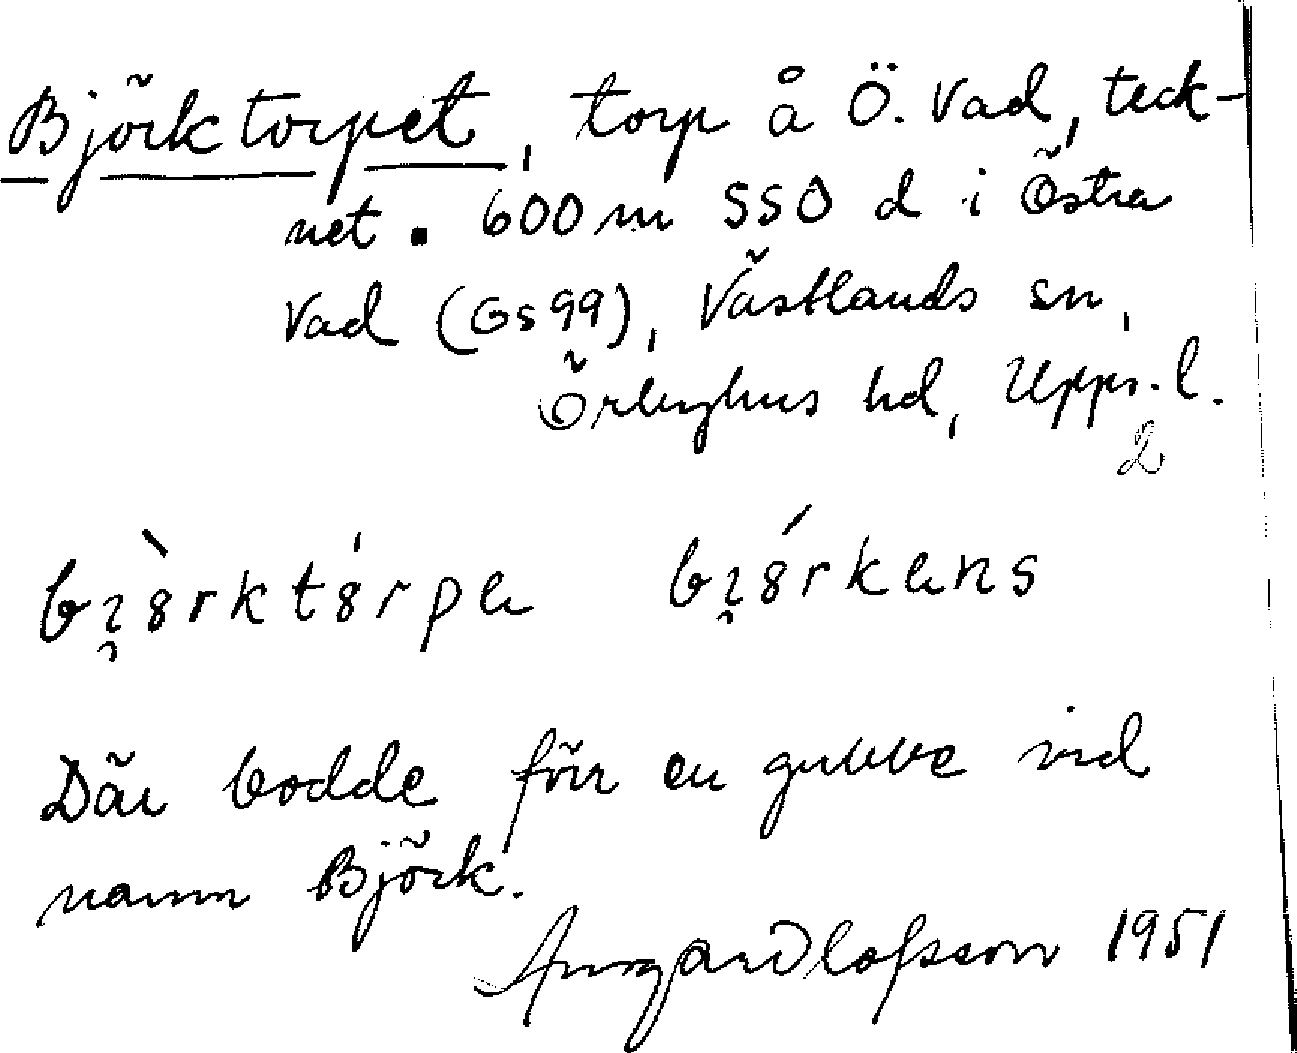 Björktorpet, torp å Ö. Vad, teck-
net ▪ 600 m SSO d i Östra
Vad (Gs 99), Västlands sn,
Örbyhus hd, Upps. l.
2
Där bodde förr en gubbe vid
namn Björk.
1951